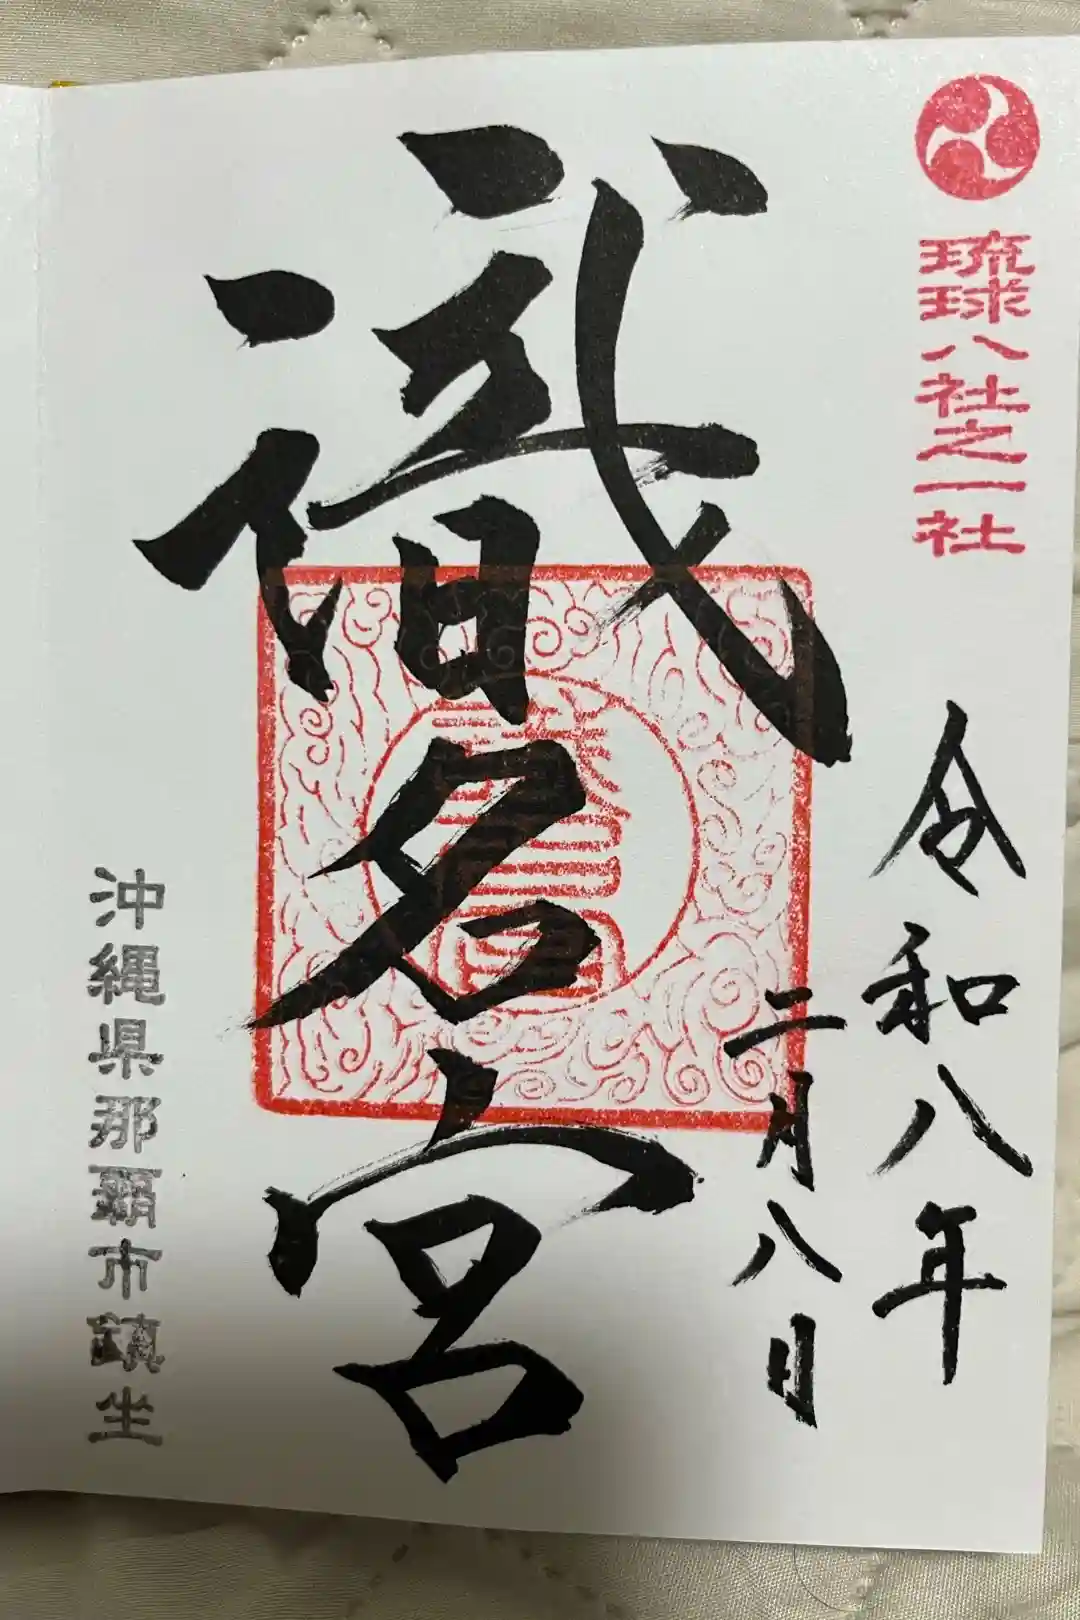 琉球八社之一社
令和八年
二月八日
識名宮
沖縄県那覇市鎮坐